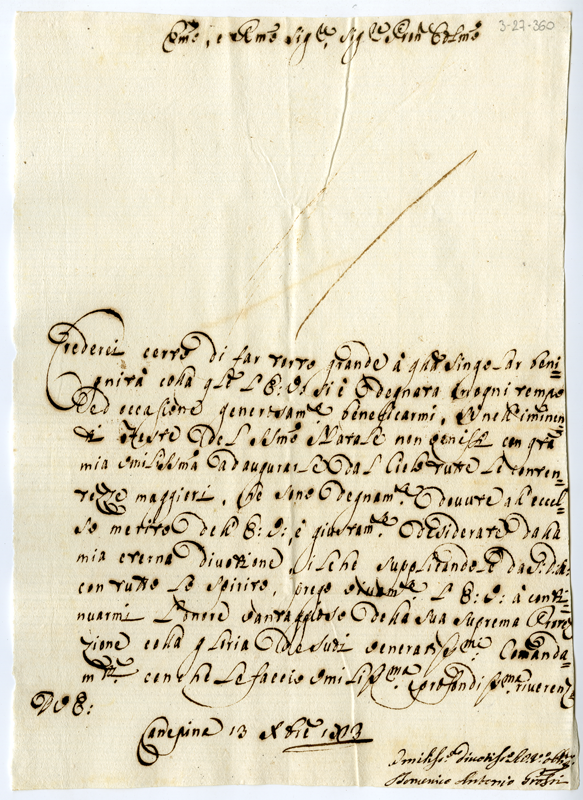 3-27-360
Emo, e Rmo Sig.re, Sig.re Pron Colmo
Crederei certo di far torto grande à q.lla singolar beni=
gnità colla q.le l'E: V: si è degnata in ogni tempo,
ed occasione generosam.te beneficarmi, se nell'iminen=
ti feste del SSmo Natale non venissi con q.sta
mia umilissima ad augurarle dal Cielo tutte le conten=
tezze maggiori, che sono degnam.te dovute all'eccel=
so merito dell'E: V:, e giustam.te desiderate dalla
mia eterna divozione, il che supplicandole da S: D: M:
con tutto lo spirito, prego l'E: V: à conti=
nuarmi l'onore vantaggioso della sua suprema Prote=
zione colla gloria de suoi veneratiss.mi Comanda=
m.ti con che le faccio umiliss.ma, e profondiss.ma riverenza
D V E:
Canepina 13 Xbre 1703
Umiliss.o Divotiss.o
Domenico Antonio